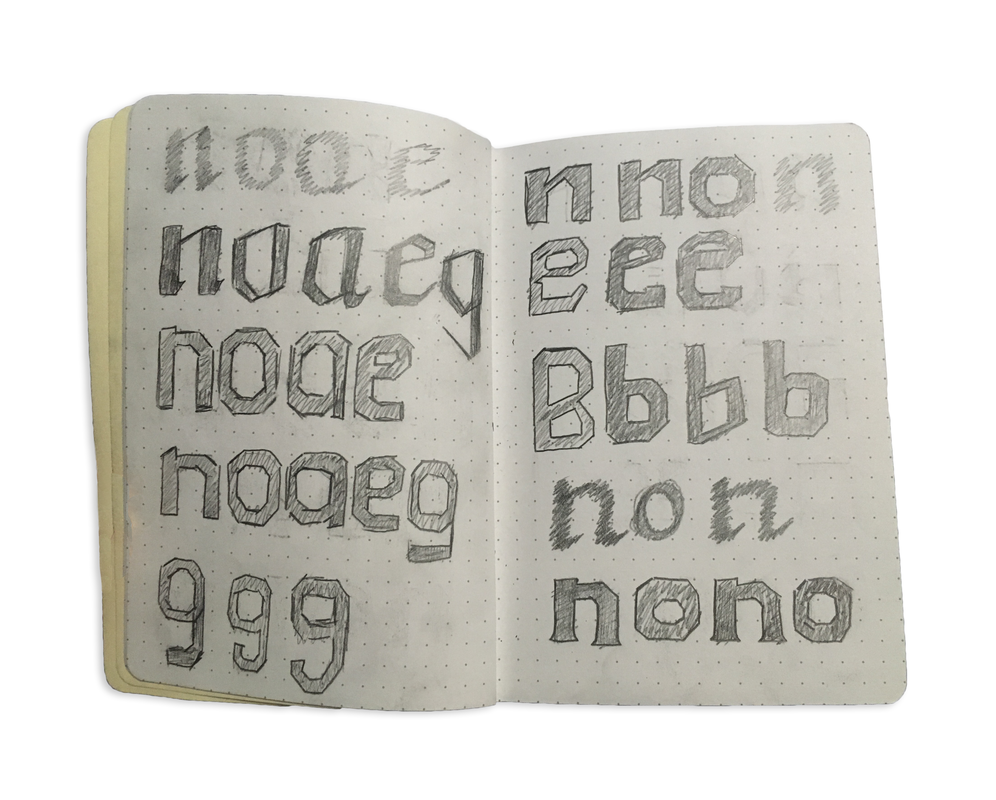 noae
noaeg
noae
noaeg
ggg
n non
eee
Bbbb
non
nono